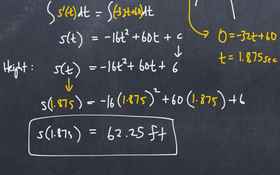 ∫s'(t)dt = ∫(-32t+60)dt
s(t) = -16t² + 60t + c
0 = -32t+60
t = 1.875 sec
Height: s(t) = -16t² + 60t + 6
s(1.875) = -16(1.875)² + 60(1.875) + 6
s(1.875) = 62.25 ft